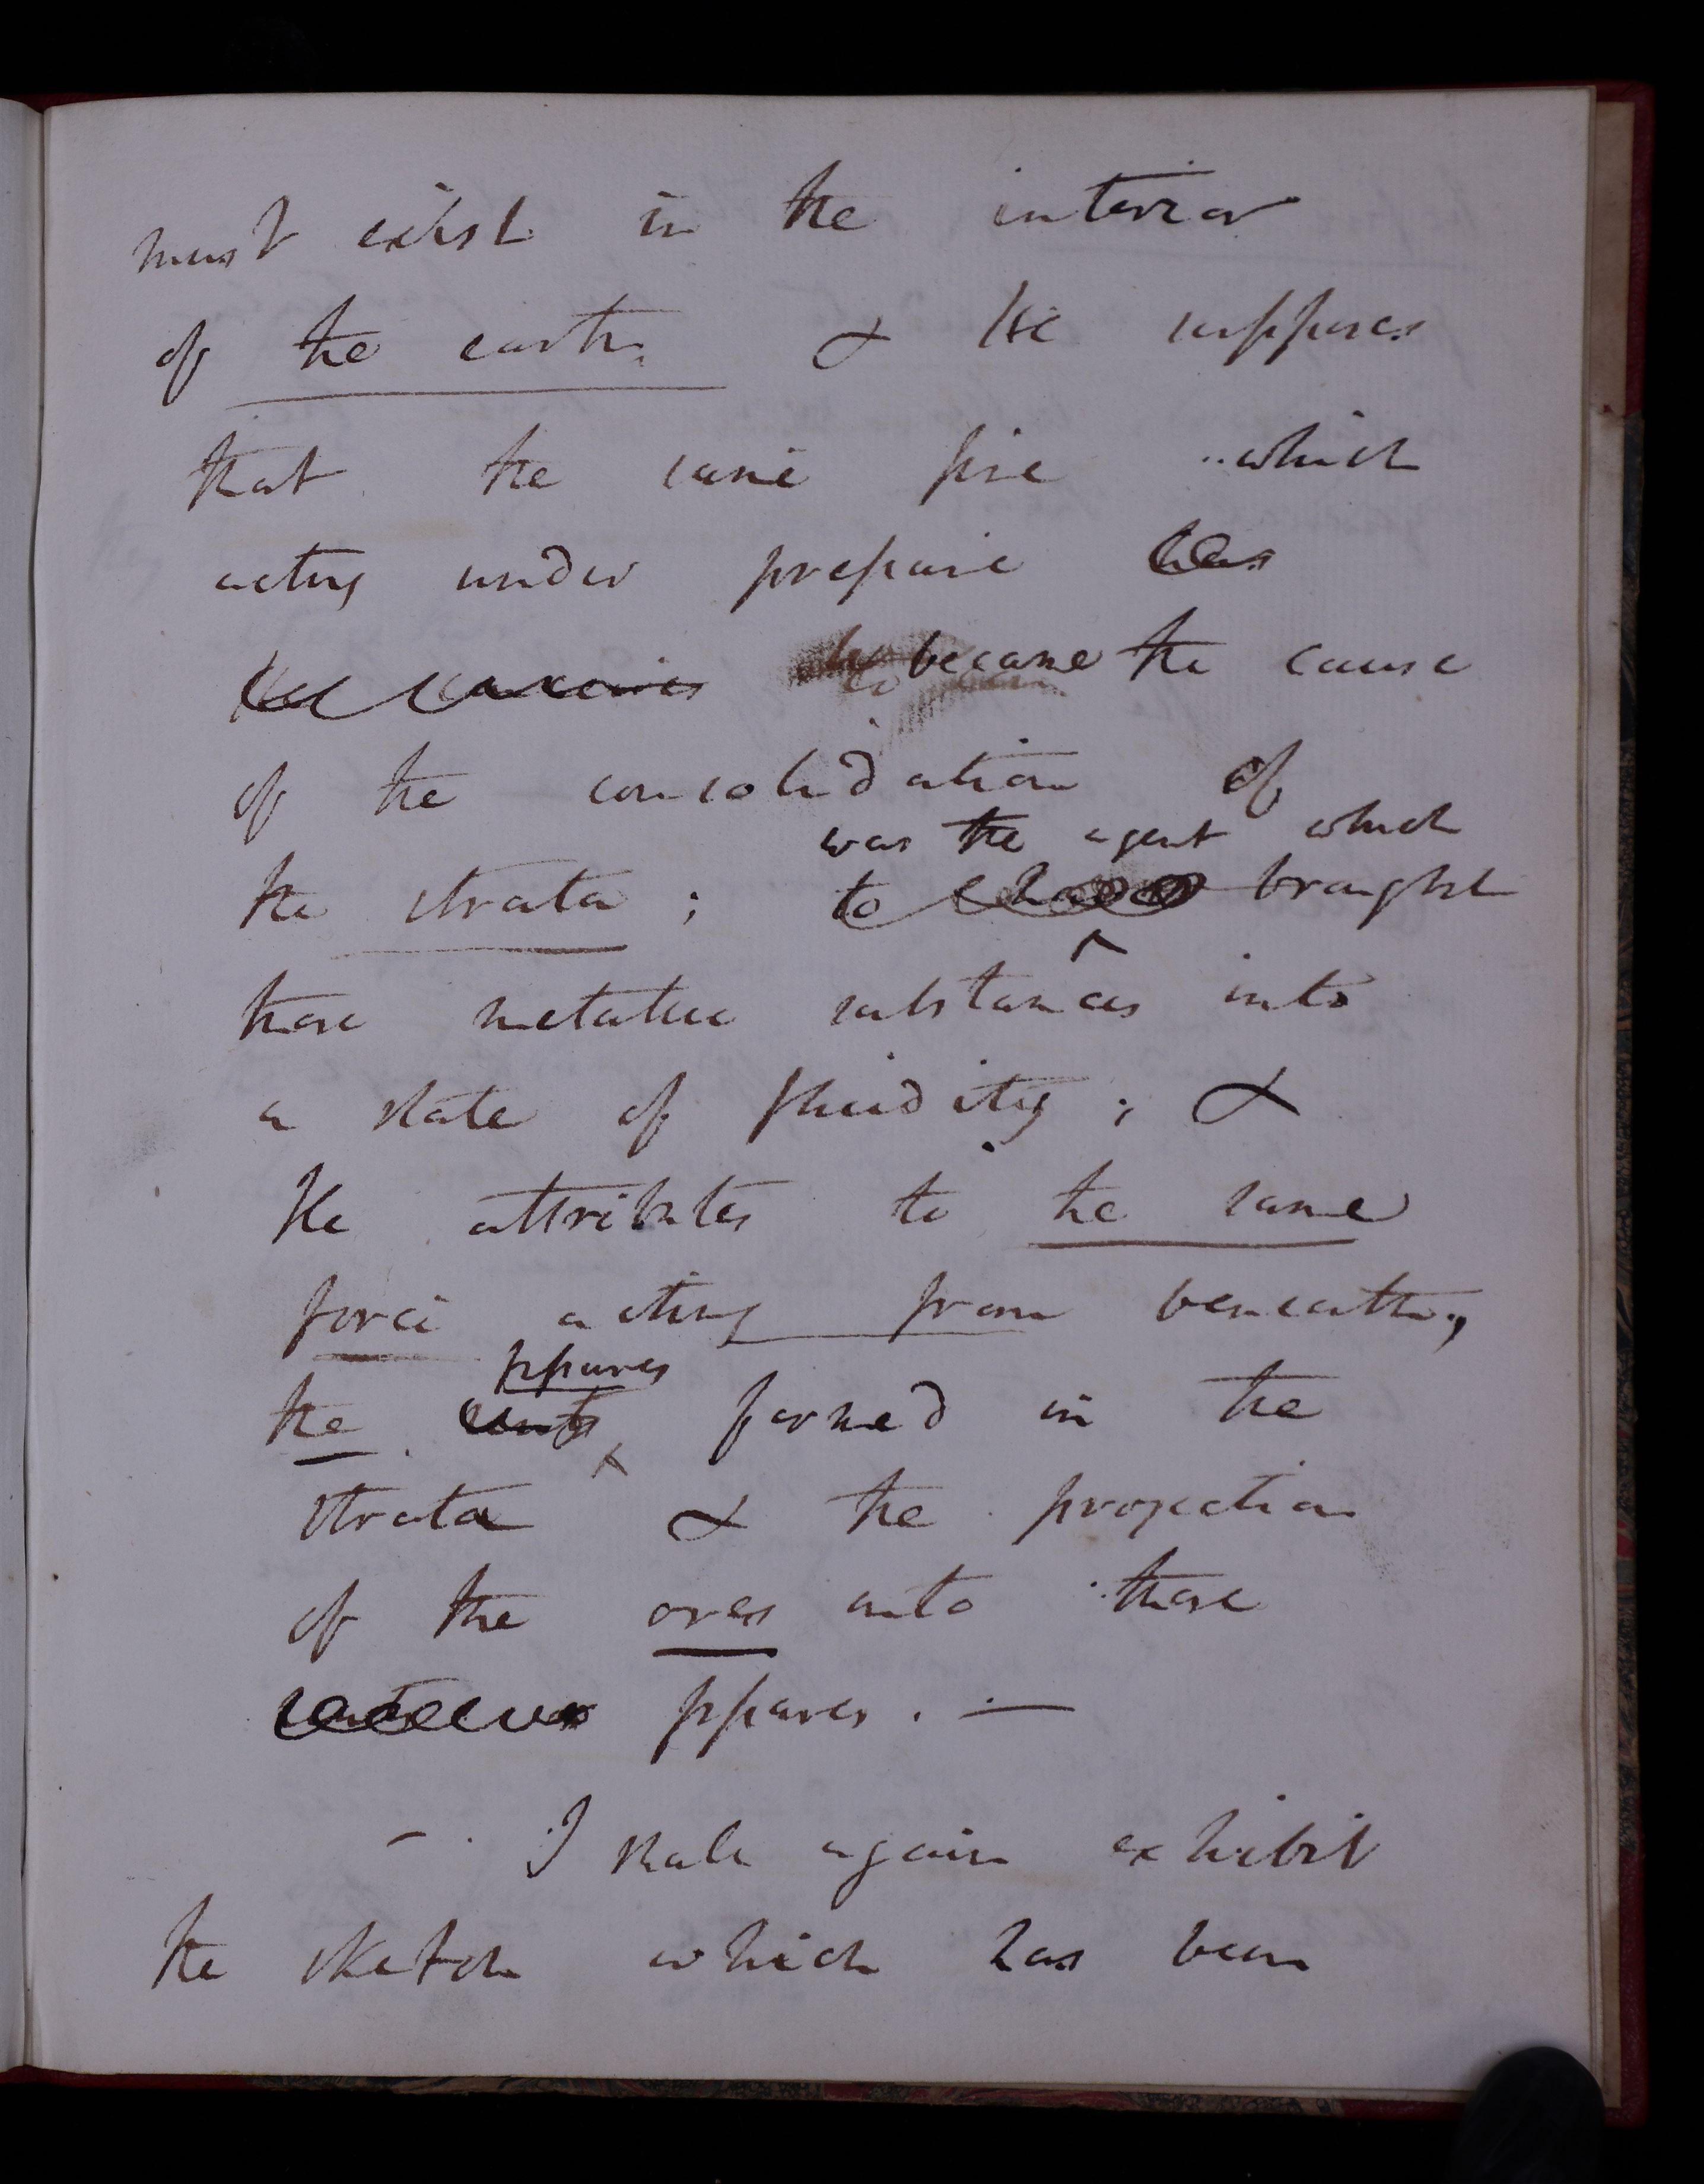 must exist in the interior
of the earth & He supposes
that the same fire which
acting under pressure has
became the cause
of the consolidation of
was the agent which
the strata; to brought
these metallic substances into
a state of fluidity; &
He attributes to the same
force acting from beneath,
fissures
the formed in the
strata & the projection
of the ores into these
fissures. —
— I shall again exhibit
the sketch which has been